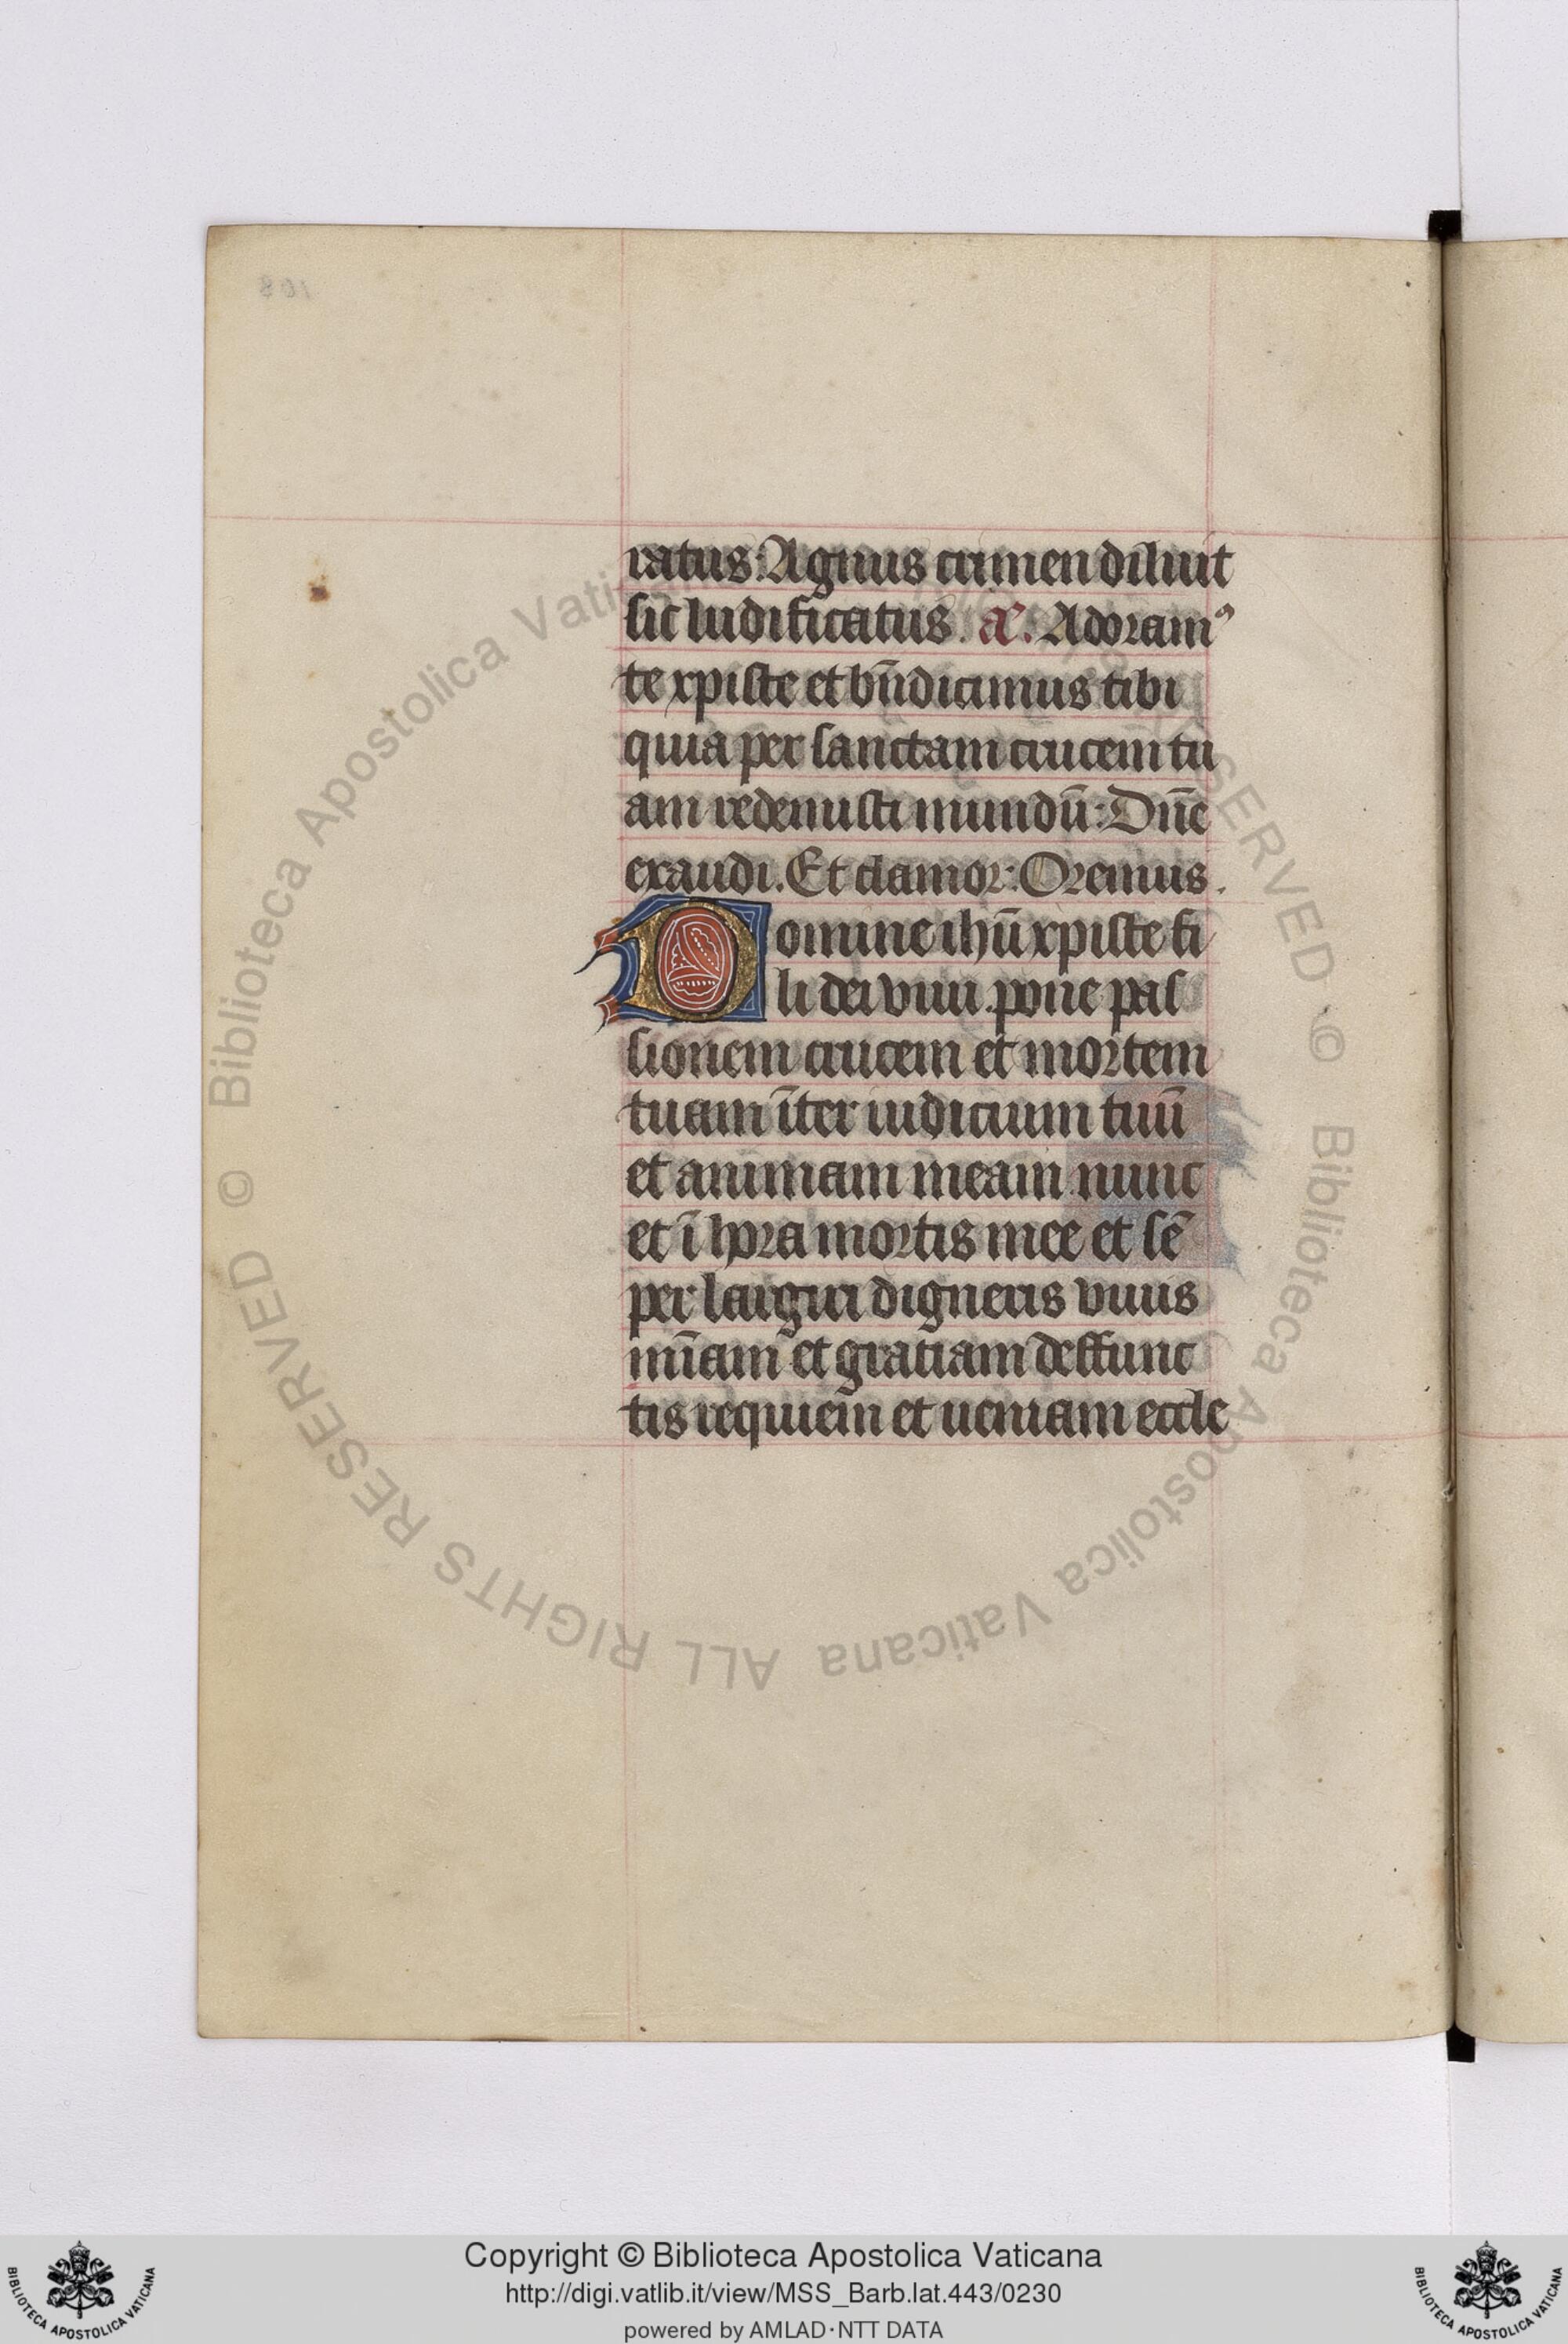 ratus: Agnus crimen diluit
sic ludificatus. a᷑. Adoram⁹
te xpiste et bn̄dicimus tibi
quia per sanctam crucem tu
am redemisti mundū: Dn̄e
exaudi. Et clamor: Oremus.
Domine ihū xpiste fi
li dei viui. pone pas
sionem crucem et mortem
tuam īter iudicium tuū
et animam meam nunc
et ī hora mortis mee et sē
per largiri digneris viuis
mīam et gratiam deffunc
tis requiem et ueniam eccle
Biblioteca Apostolica Vaticana ALL RIGHTS RESERVED © Biblioteca Apostolica Vaticana ALL RIGHTS RESERVED ©
Copyright © Biblioteca Apostolica Vaticana
http://digi.vatlib.it/view/MSS_Barb.lat.443/0230
powered by AMLAD·NTT DATA
BIBLIOTECA APOSTOLICA VATICANA
BIBLIOTECA APOSTOLICA VATICANA